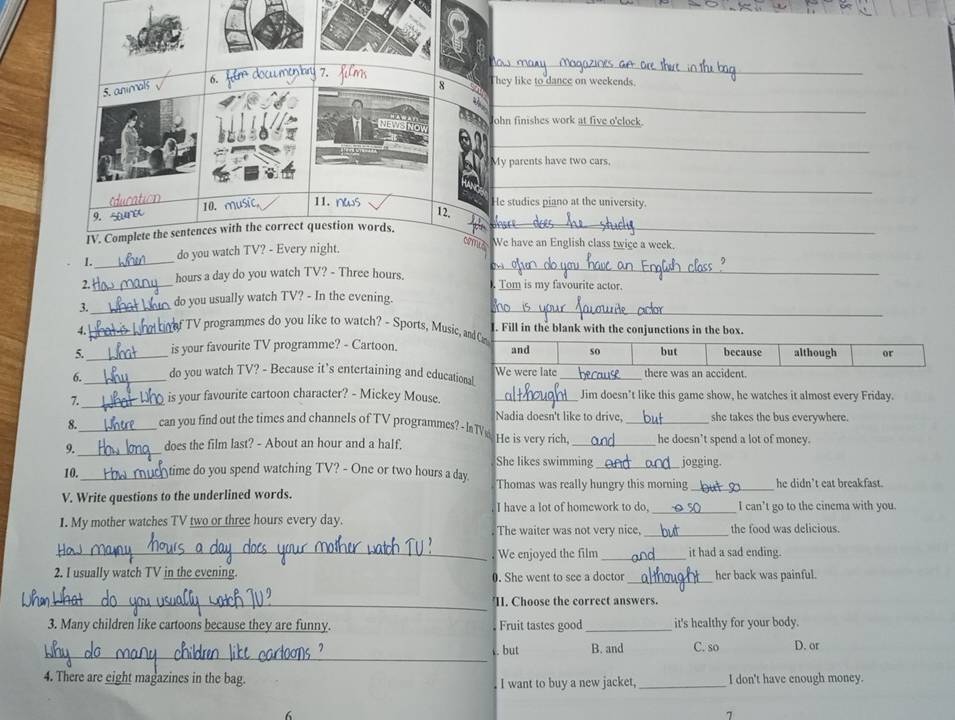 5. animals
6. documentary
7. films
8
NEWS NOW
education
9. science
10. music
11. news
12.
IV. Complete the sentences with the correct question words.
1. When do you watch TV? - Every night.
2. How many hours a day do you watch TV? - Three hours.
3. What When do you usually watch TV? - In the evening.
4. What is What kind of TV programmes do you like to watch? - Sports, Music, and
5. What is your favourite TV programme? - Cartoon.
6. Why do you watch TV? - Because it's entertaining and educational.
7. What Who is your favourite cartoon character? - Mickey Mouse.
8. Where can you find out the times and channels of TV programmes? - In TV
9. How long does the film last? - About an hour and a half.
10. How much time do you spend watching TV? - One or two hours a day.
V. Write questions to the underlined words.
1. My mother watches TV two or three hours every day.
How many hours a day does your mother watch TV?
2. I usually watch TV in the evening.
When What do you usually watch TV?
3. Many children like cartoons because they are funny.
Why do many children like cartoons ?
4. There are eight magazines in the bag.
6
How many magazines are there in the bag
They like to dance on weekends.
John finishes work at five o'clock.
My parents have two cars.
He studies piano at the university.
does he study
We have an English class twice a week.
often do you have an English class ?
Tom is my favourite actor.
is your favourite actor
I. Fill in the blank with the conjunctions in the box.
and so but because although or
We were late because there was an accident.
althought Jim doesn't like this game show, he watches it almost every Friday.
Nadia doesn't like to drive, but she takes the bus everywhere.
He is very rich, and he doesn't spend a lot of money.
She likes swimming and and jogging.
Thomas was really hungry this morning but so he didn't eat breakfast.
I have a lot of homework to do, so I can't go to the cinema with you.
The waiter was not very nice, but the food was delicious.
We enjoyed the film and it had a sad ending.
0. She went to see a doctor althought her back was painful.
II. Choose the correct answers.
Fruit tastes good it's healthy for your body.
but B. and C. so D. or
I want to buy a new jacket, I don't have enough money.
7